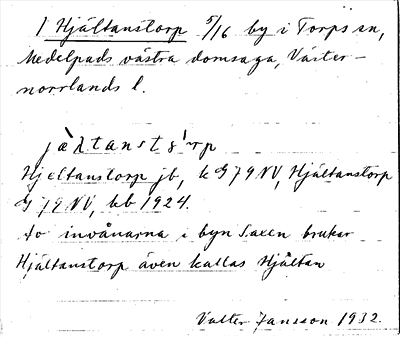 1 Hjältanstorp 5/16 by i Torps sn,
Medelpads västra domsaga, Väster-
norrlands l.
Hjeltanstorp jb, k G79NV, Hjältanstorp
G79NV, hb 1924.
av invånarna i byn Saxen brukar
Hjältanstorp även kallas Hjältan
Valter Jansson 1932.